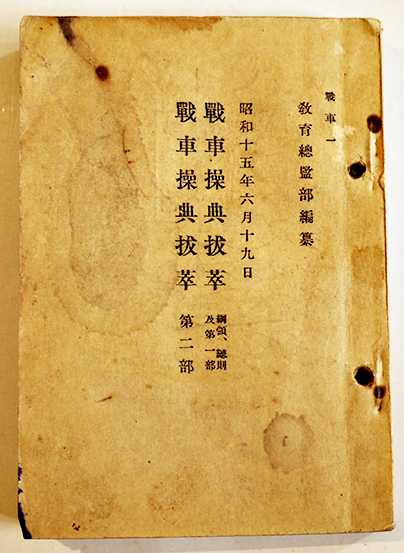 戰車一
敎育總監部編纂
昭和十五年六月十九日
戰車操典拔萃 綱領、總則及第一部
戰車操典拔萃 第二部